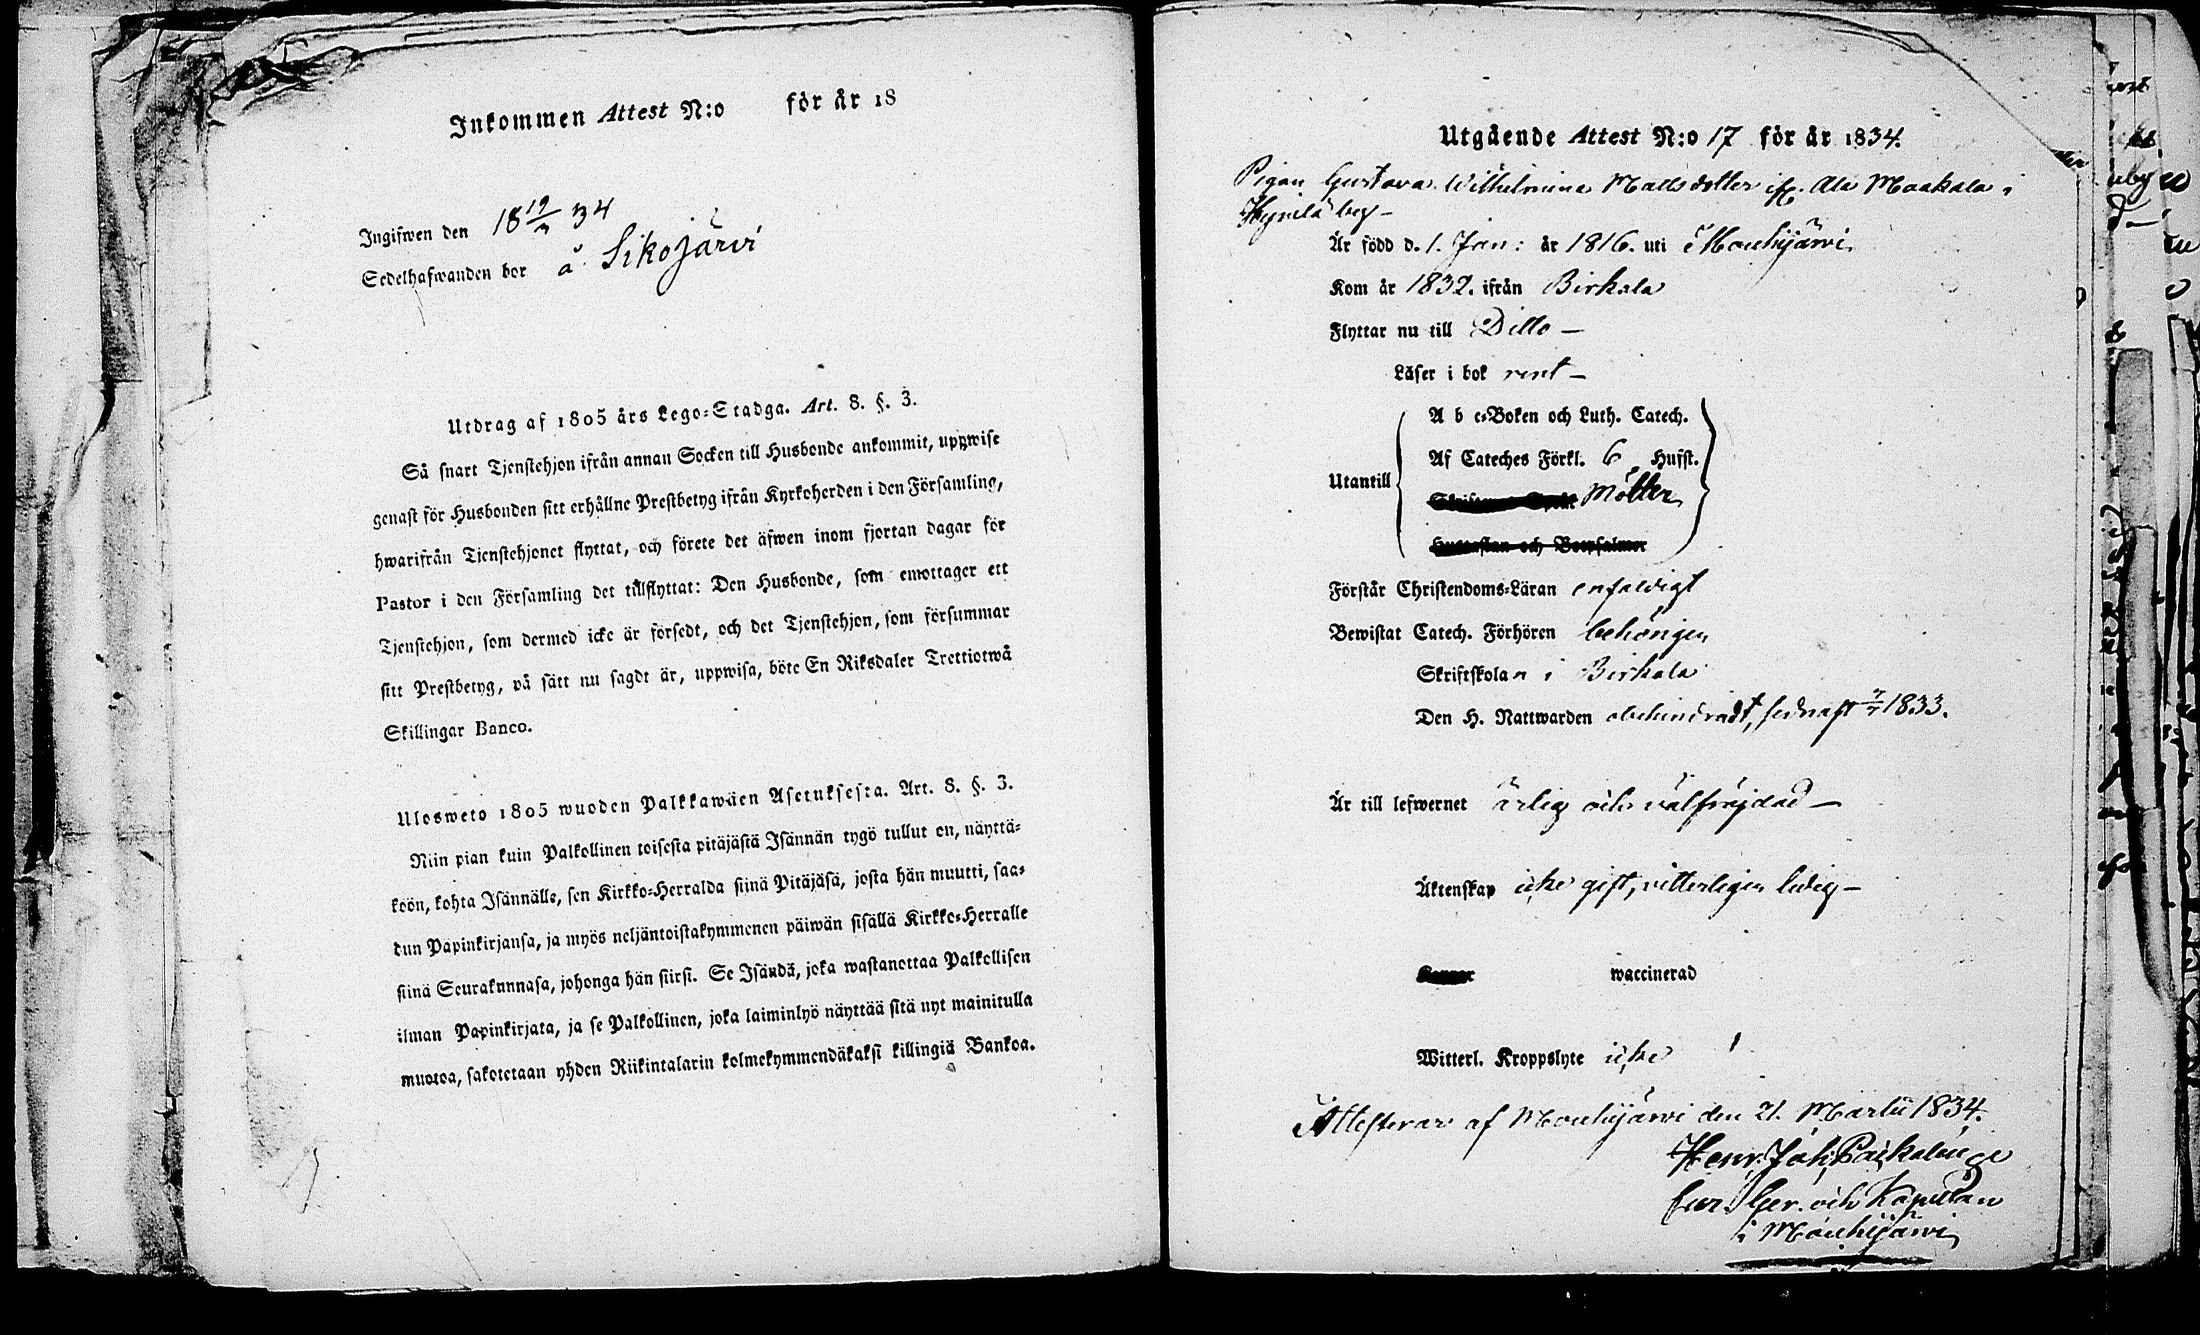 Inkommen Attest N:o för år 18
Ingifwen den 18 19/ 34
Sedelhafwanden bor å Sikojärvi
Utdrag af 1805 års Lego-Stadga. Art. 8. §. 3.
Så snart Tjenstehjon ifrån annan Socken till Husbonde ankommit, uppwise
genast för Husbonden sitt erhållne Prestbetyg ifrån Kyrkoherden i den Församling,
hwarifrån Tjenstehjonet flyttat, och förete det äfwen inom fjortan dagar för
Pastor i den Församling det tillflyttat: Den Husbonde, som emottager ett
Tjenstehjon, som dermed icke är försedt, och det Tjenstehjon, som försummar
sitt Prestbetyg, på sätt nu sagdt är, uppwisa, böte En Riksdaler Trettiotwå
Skillingar Banco.
Ulosweto 1805 wuoden Palkkawäen Asetuksesta. Art. 8. §. 3.
Niin pian kuin Palkollinen toisesta pitäjästä Isännän tygö tullut on, näyttä-
köön, kohta Isännälle, sen Kirkko-Herralda siinä Pitäjäsä, josta hän muutti, saa-
dun Papinkirjansa, ja myös neljäntoistakymmenen päiwän sisällä Kirkko-Herralle
siinä Seurakunnasa, johonga hän siirsi. Se Isändä, joka wastanottaa Palkollisen
ilman Papinkirjata, ja se Palkollinen, joka laiminlyö näyttää sitä nyt mainitulla
muotoa, sakotetaan yhden Riikintalarin kolmekymmendäkaksi killingiä Bankoa.
Utgående Attest N:o 17 för år 1834.
Pigan Gustava Wilhelmina Mattsdotter ifr. Ala Maakala i
Hyynilä by –
Är född d. 1. Jan: år 1816. uti Mouhijärwi
Kom år 1832. ifrån Birkala
Flyttar nu till Ditto –
Läser i bok rent –
A b c-Boken och Luth. Catech.
Af Cateches Förkl. 6 Hufst.
Utantill
Möller
Hustaflan och Botpsalmer
Förstår Christendoms-Läran enfaldigt
Bewistat Catech. Förhören behörigen
Skriftskolan i Birkala
Den H. Nattwarden obehindradt, sednast 1833.
Är till lefwernet ärlig och välfräjdad –
Äktenskap icke gift, vitterligen ledig –
Koppor waccinerad
Witterl. Kroppslyte icke
Attesterar af Mouhijärwi den 21. Martii 1834.
Henr. Joh.
och Kapellan
i Mouhijärwi